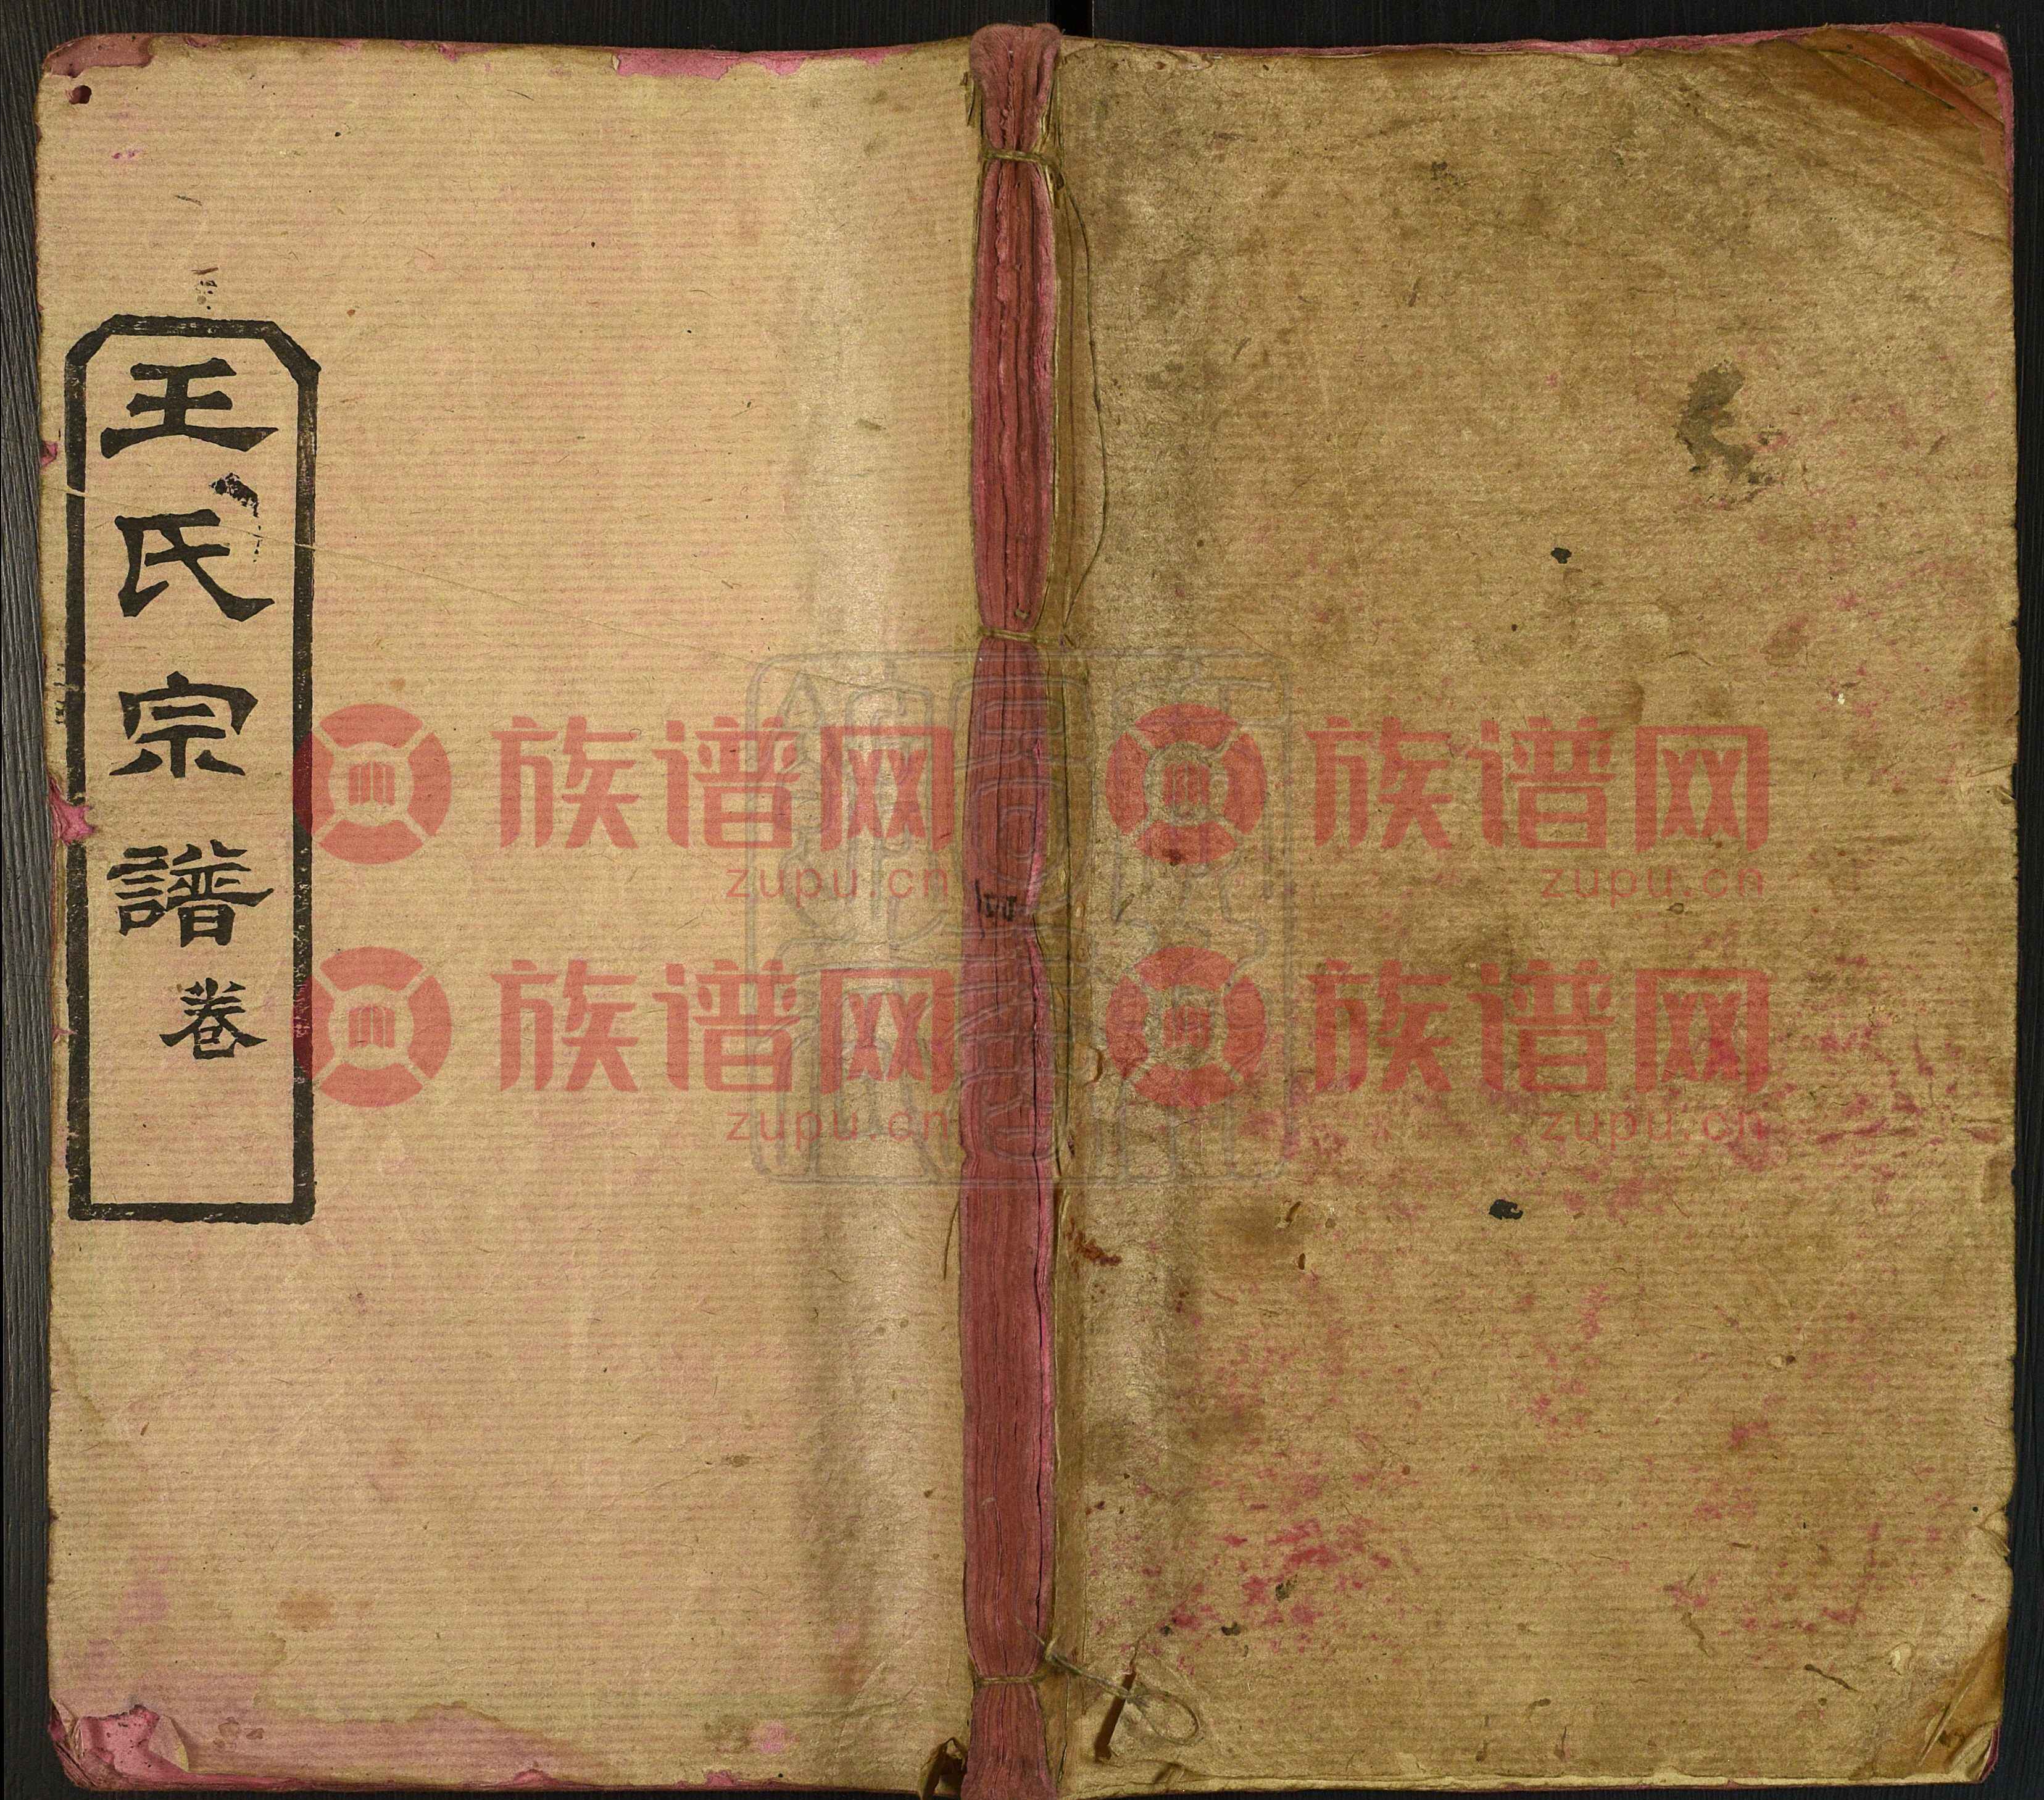 王氏宗譜卷
族谱网 族谱网
zupu.cn zupu.cn
族谱网 族谱网
zupu.cn zupu.cn